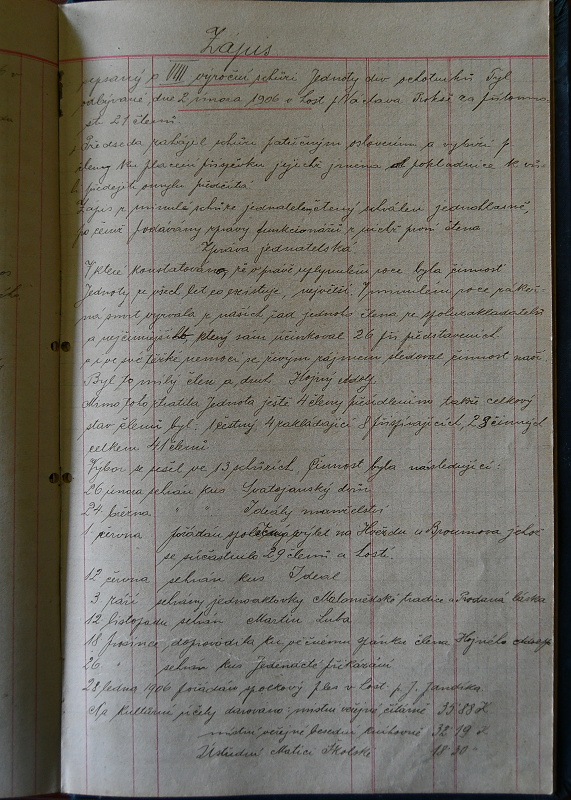 Zápis
sepsaný o VIII výroční schůzi Jednoty div. ochotníků Tyl
odbývané dne 2 února 1906 v host. p. Václava Prokše za přítomno-
sti 21 členů.
Předseda zahájil schůzi patřičným oslovením a vybízí p.
členy ku placení příspěvku jejichž jména pokladnice k
předejití omylu předčítá.
Zápis z minulé schůze jednatelem čtený schválen jednohlasně,
po čemž podávány zprávy funkcionářů z nichž první čtena
Zpráva jednatelská
V které konstatováno, že v právě uplynulém roce byla činnost
Jednoty ze všech let co existuje, největší. V minulém roce
smrt vyrvala z našich řad jednoho člena ze spoluzakladatelů
a nejčinnější, který sám účinkoval 26 při představeních.
a i ve své těžké nemoci se živým zájmem sledoval činnost naši.
Byl to milý člen a druh Hojný
Mimo toho ztratila Jednota ještě 4 členy přesídlením takže celkový
stav členů byl: 1 čestný 4 zakládající 8 přispívajících, 28 činných
celkem 41 členů
Výbor se sešel ve 13 schůzích. Činnost byla následující:
26 února sehrán kus Svatojanský dvůr
24 března " " Ideály manželství
1. června pořádán společný výlet na Hvězdu u Broumova jehož
se súčastnilo 29 členů a hostí.
12 června sehrán kus Ideal
3 září sehrány jednoaktovky Maloměstské tradice a Prodaná láska
12 listopadu sehrán Martin Luba
18 prosince, doprovodila ku věčnému spánku člena Hojného
26 " sehrán kus Jedenácté přikázání
28 ledna 1906 pořádán spolkový ples v host. p. J. Jandíka
Na kulturní účely darováno: místní veřejné čítárně 35·88 K
místní veřejné besední knihovně 32·19 K
Ústřední Matici Školské 18·20 "